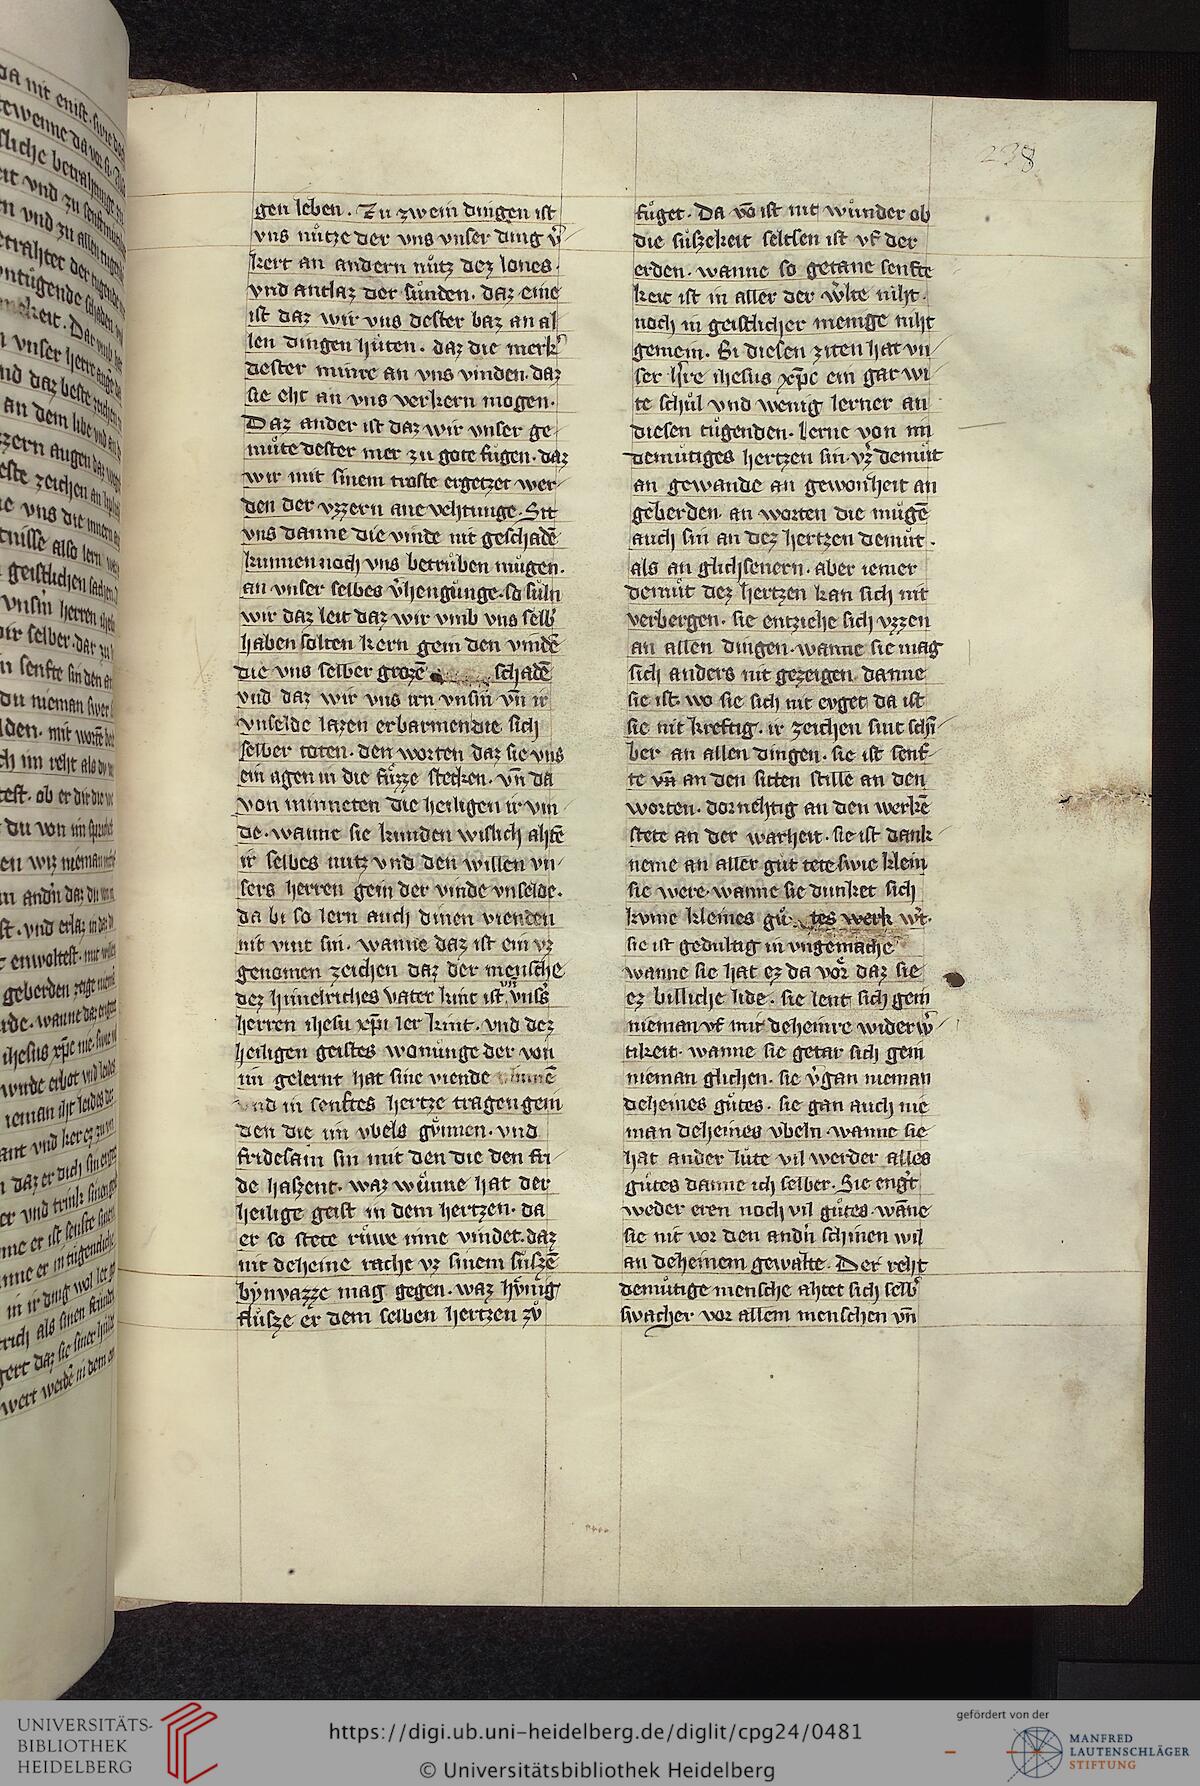 238
gen leben. Zu zwein dingen ist
vns nuͤtze der vns vnser ding v͛-
kert an andern nuͤtz dez lones.
vnd antlaz der suͤnden. daz eine
ist daz wir vns dester baz an al
len dingen huͤten. daz die merk͛
dester minre an vns vinden. daz
sie eht an vns verkern mogen.
Daz ander ist daz wir vnser ge-
muͤte dester mer zu gote fuͤgen. daz
wir mit sinem troste ergetzet wer-
den der vzzern ane vehtunge. Sit
vns danne die vinde nit geschadē
kunnen noch vns betruͤben muͤgen.
an vnser selbes v͛henguͤnge. so suͤln
wir daz leit daz wir vmb vns selb͛
haben solten kern gein den vindē
die vns selber grozē schadē
vnd daz wir vns irn vnsin vn̄ ir
vnselde lazen erbarmen die sich
selber toten. den worten daz sie vns
ein agen in die fuͤzze stecken. vn̄ da
von minneten die heiligen ir vin-
de. wanne sie kunden wislich ahtē
ir selbes nutz vnd den willen vn-
sers herren gein der vinde vnselde.
da bi so lern auch dinen vienden
nit vint sin. wanne daz ist ein vz
genomen zeichen daz der mensche
dez himelriches vater kint ist, vn̄ vns͛s
herren ihesu xp̄i ler kint. vnd dez
heiligen geistes wonuͤnge der von
im gelernt hat sine viende minnē
vnd in senftes hertze tragen gein
den die im vbels guͤnnen. vnd
fridesam sin mit den die den fri-
de haszent. waz wuͤnne hat der
heilige geist in dem hertzen. da
er so stete ruͤwe inne vindet. daz
nit deheine rache vz sinem suͤszē
bynvazze mag gegen. waz hoͤnig
fluͤsze er dem selben hertzen zuͦ
fuͤget. Da vō ist nit wuͤnder ob
die suͤszekeit seltsen ist vf der
erden. wanne so getane senfte
keit ist in aller der w͛lte niht.
noch in geistlicher menige niht
gemein. Bi diesen ziten hat vn-
ser h͛re ihesus xp̄c ein gar wi-
te schuͤl vnd wenig lerner an
diesen tuͤgenden. lerne von mi
demuͤtiges hertzen sin. vz͛ demuͤt
an gewande an gewonheit an
geberden an worten die muͤgē
auch sin an dez hertzen demuͤt.
als an glichsenern. aber iemer
demuͤt dez hertzen kan sich nit
verbergen. sie entziehe sich vzzen
an allen dingen. wanne sie mag
sich anders nit gezeigen danne
sie ist. wo sie sich nit eyget da ist
sie nit kreftig. ir zeichen sint schī-
ber an allen dingen. sie ist senf-
te vn̄ an den sitten stille an den
worten. dornehtig an den werkē
stete an der warheit. sie ist dank
neme an aller guͤt tete swie klein
sie were. wanne sie dunket sich
kvme kleines guͤtes werk w͛t.
sie ist gedultig in vngemache
wanne sie hat ez da vor͛ daz sie
ez billiche lide. sie lent sich gein
nieman vf mit deheinre wider w͛-
tikeit. wanne sie getar sich gein
nieman glichen. sie v͛gan nieman
deheines guͤtes. sie gan auch nie
man deheines vbeln wanne sie
hat ander luͤte vil werder alles
guͤtes danne ich selber. Sie eng͛t
weder eren noch vil guͤtes. wāne
sie nit vor den and͛n schinen wil
an deheinem gewalte. Der reht
demuͤtige mensche ahtet sich selb͛
swacher vor allem menschen vn̄
UNIVERSITÄTS-
BIBLIOTHEK
HEIDELBERG
https://digi.ub.uni-heidelberg.de/diglit/cpg24/0481
© Universitätsbibliothek Heidelberg
gefördert von der
MANFRED
LAUTENSCHLÄGER
STIFTUNG